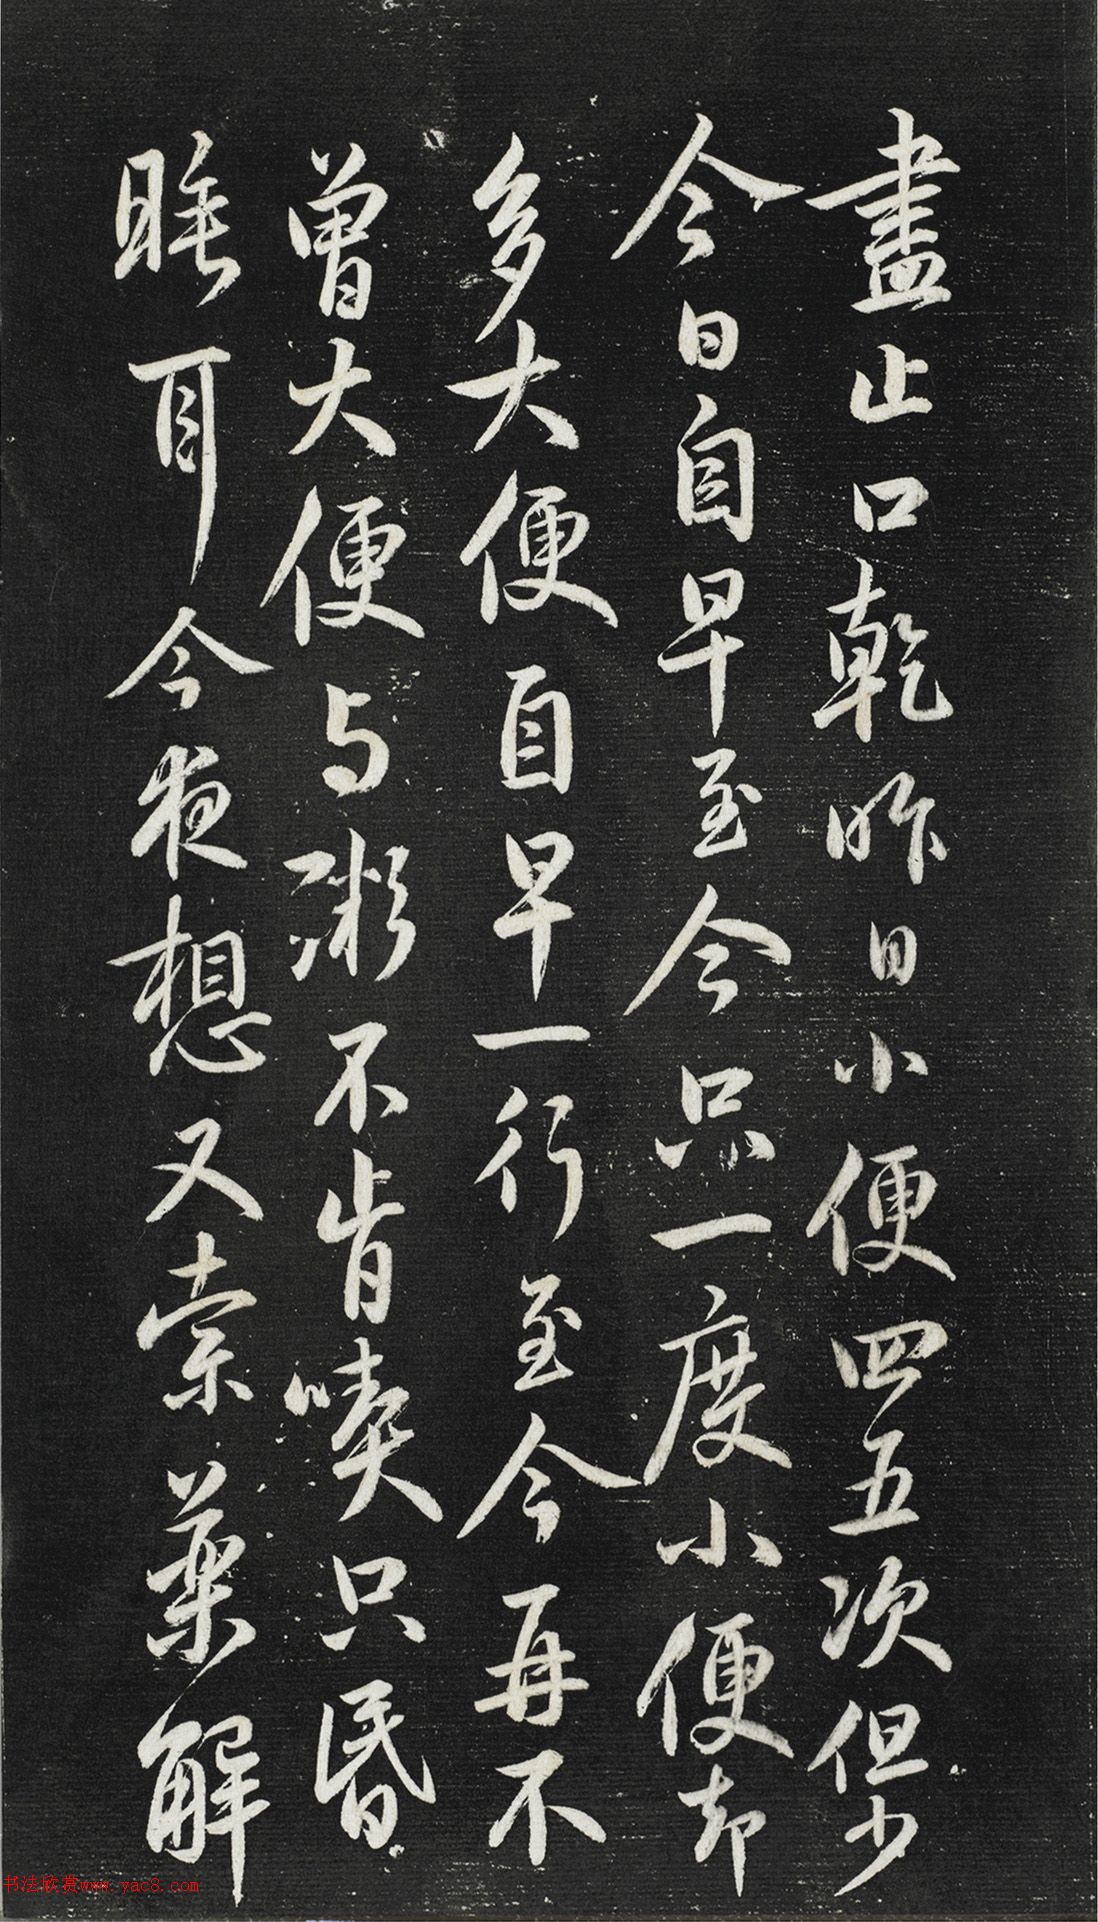 盡止口乾昨日小便四五次但少
今日自早至今只一度小便却
多大便自早一行至今再不
曾大便与粥不肯喫只昏
睡耳今夜想又索藥解
书法欣赏www.yac8.com